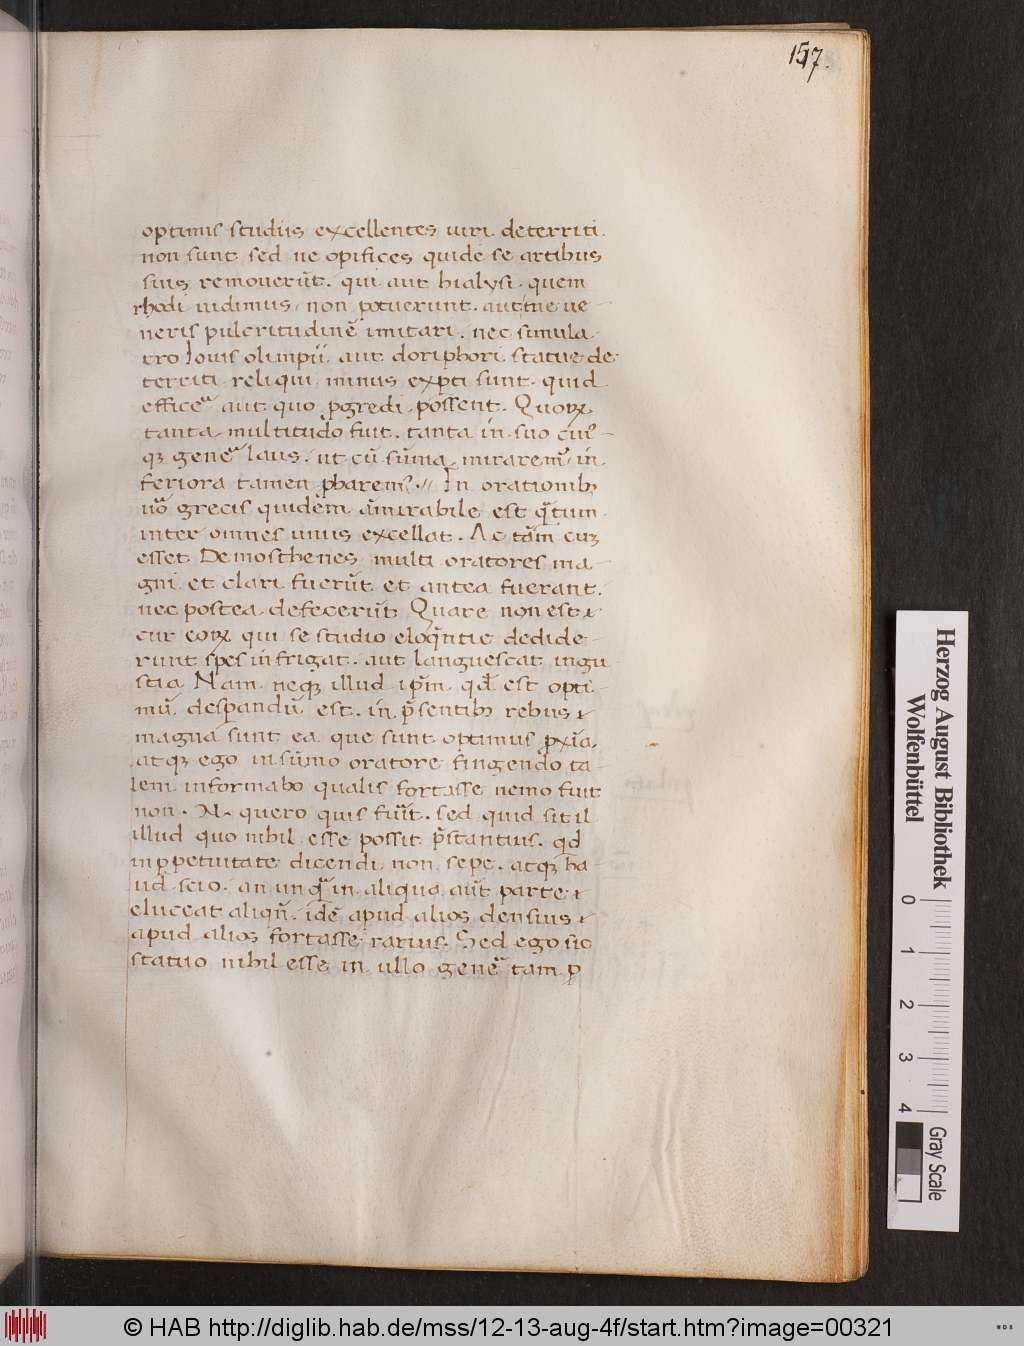 157.
optimis studiis excellentes uiri deterriti
non sunt sed ne opifices quidē se artibus
suis remouerūt. qui aut hialysi quem
rhodi uidimus, non potuerunt. aut ue ue-
neris pulcritudinē imitari. nec simula
cro Iouis olimpii. aut doriphori statue de
territi reliqui minus expti sunt. quid
efficeͬ aut quo ꝓgredi possent. Quoꝝ
tanta multitudo fuit. tanta in suo cuiꝰ-
qꝫ geneͬ laus. ut cū sūma mirarem͛ in
feriora tamen ꝓbarem͛. // In orationibꝫ
uͦ grecis quidem āmirabile est qͣtum
inter omnes unus excellat. Ac tām cuꝫ
esset Demosthenes multi oratores ma-
gni et clari fuerūt et antea fuerant.
nec postea defecerūt. Quare non est
cur eoꝝ qui se studio eloqͣntie dedide-
runt spes infrigat. aut languescat ingu
stia. Nam neqꝫ illud ip̄m qd̄ est opti-
mū despandū est. in p̄sentibꝫ rebus
magna sunt ea que sunt optimus ꝓxīa.
atqꝫ ego in sūmo oratore fingendo ta-
lem informabo qualis fortasse nemo fuit
non. N. quero quis fuīt. sed quid sit il
illud quo nihil esse possit p̄stantius. qd
in ꝑpetuitate dicendi non sepe. atqꝫ ha-
ud scio. an unqͣ in aliqua aūt parte
eluceat aliqn̄. idē apud alios densius
apud alios fortasse rarius. Sed ego sic
statuo nihil esse in ullo geneͬ tam p
Herzog August Bibliothek
Wolfenbüttel
0 1 2 3 4
Gray Scale
© HAB http://diglib.hab.de/mss/12-13-aug-4f/start.htm?image=00321